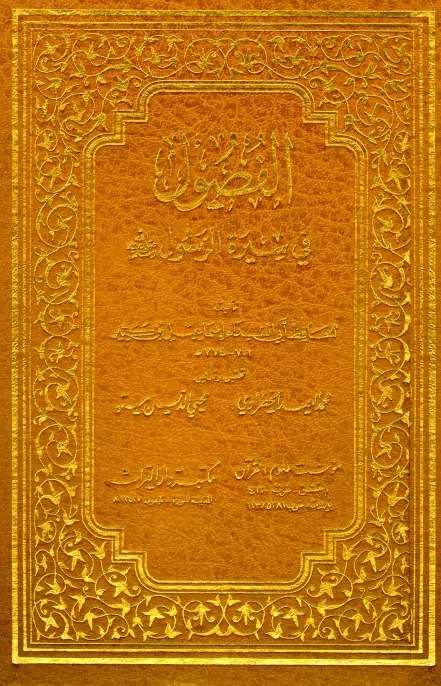 الفصول
في سيرة الرسول ﷺ
تأليف
الحافظ أبي الفداء إسماعيل بن كثير
٧٠١-٧٧٤هـ
تحقيق وتعليق
محمد العيد الخطراوي
محيي الدين مستو
مؤسسة علوم القرآن
دمشق
بيروت
مكتبة دار التراث
المدينة المنورة